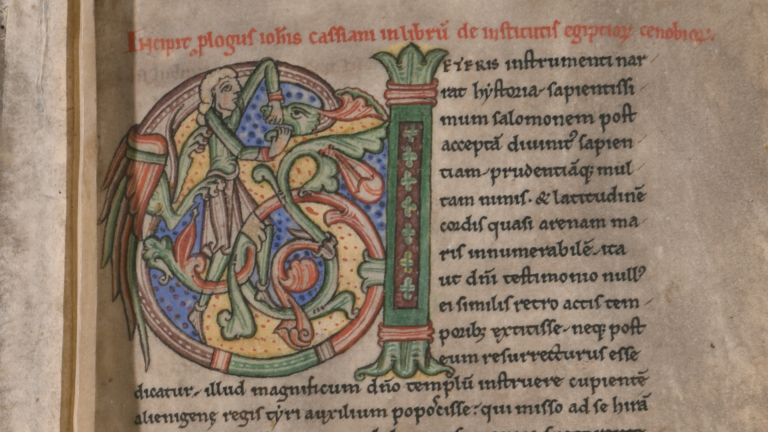 Incipit plogus iohis cassiani in librū de institutis egiptior cenobior.
VETERIS instrumenti nar
rat hystoria sapientissi
mum salomonem post
acceptā divinit' sapien
tiam prudentiāq; mul
tam nimis. & latitudinē
cordis quasi arenam ma
ris innumerabilē. ita
ut dni testimonio null'
ei similis retro actis tem
porib; extitisse. neq; post
eum resurrecturus esse
dicatur. illud magnificum dño templū instruere cupientē
alienigenę regis tyri auxilium poposcisse. qui misso ad se hirā